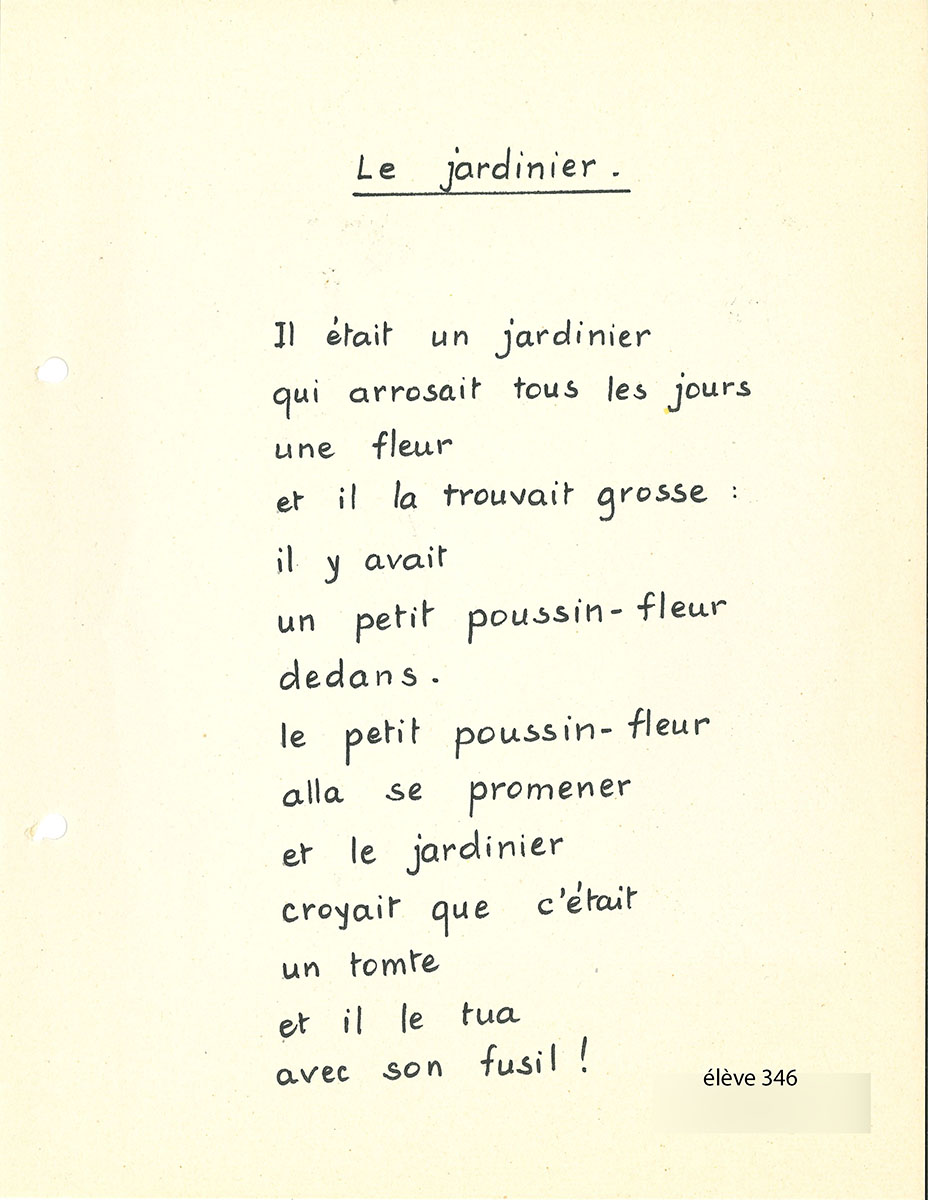 Le jardinier.
Il était un jardinier
qui arrosait tous les jours
une fleur
et il la trouvait grosse :
il y avait
un petit poussin-fleur
dedans.
le petit poussin-fleur
alla se promener
et le jardinier
croyait que c'était
un tomte
et il le tua
avec son fusil !
élève 346